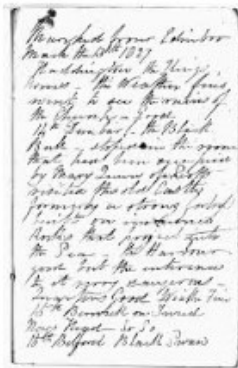 Marched from Edinbro
March the 13th 1823
Haddington the Kings
the Weather fine
went to see the ruins of
the Church - Good
14th Dunbar - the Black
Bull - in the room
that have been occupied
by Mary Queen of Scots
visited the old Castle
formerly a strong
built on
Rocks that project into
the Sea - the Harbour
good but the entrance
to it very dangerous -
Good Weather Fine
15th Berwick on Tweed
So So
16th Belford Black Swan